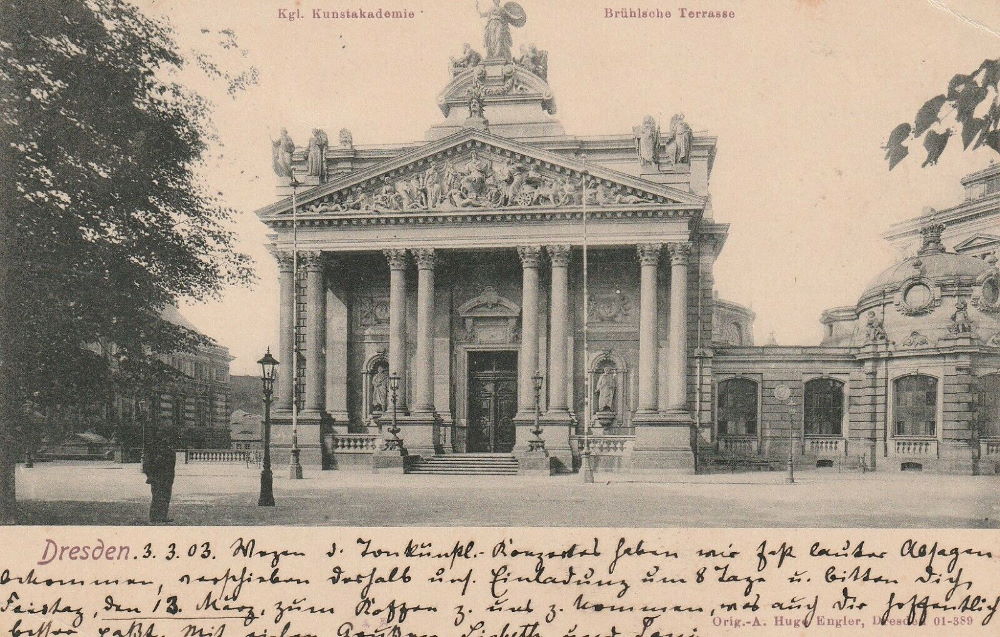 Kgl. Kunstakademie
Brühlsche Terrasse
Dresden. 3. 3. 03. Wegen d. Tonkünstl.-Konzertes haben wir fast lauter Absagen
bekommen, verschieben deshalb uns. Einladung um 8 Tage u. bitten Dich,
Freitag, den 13. März, zum Kaffee z. uns z. kommen, was auch Dir hoffentlich
besser paßt. Mit vielen Grüßen Lisbeth und
Orig.-A. Hugo Engler, Dresden 01-389